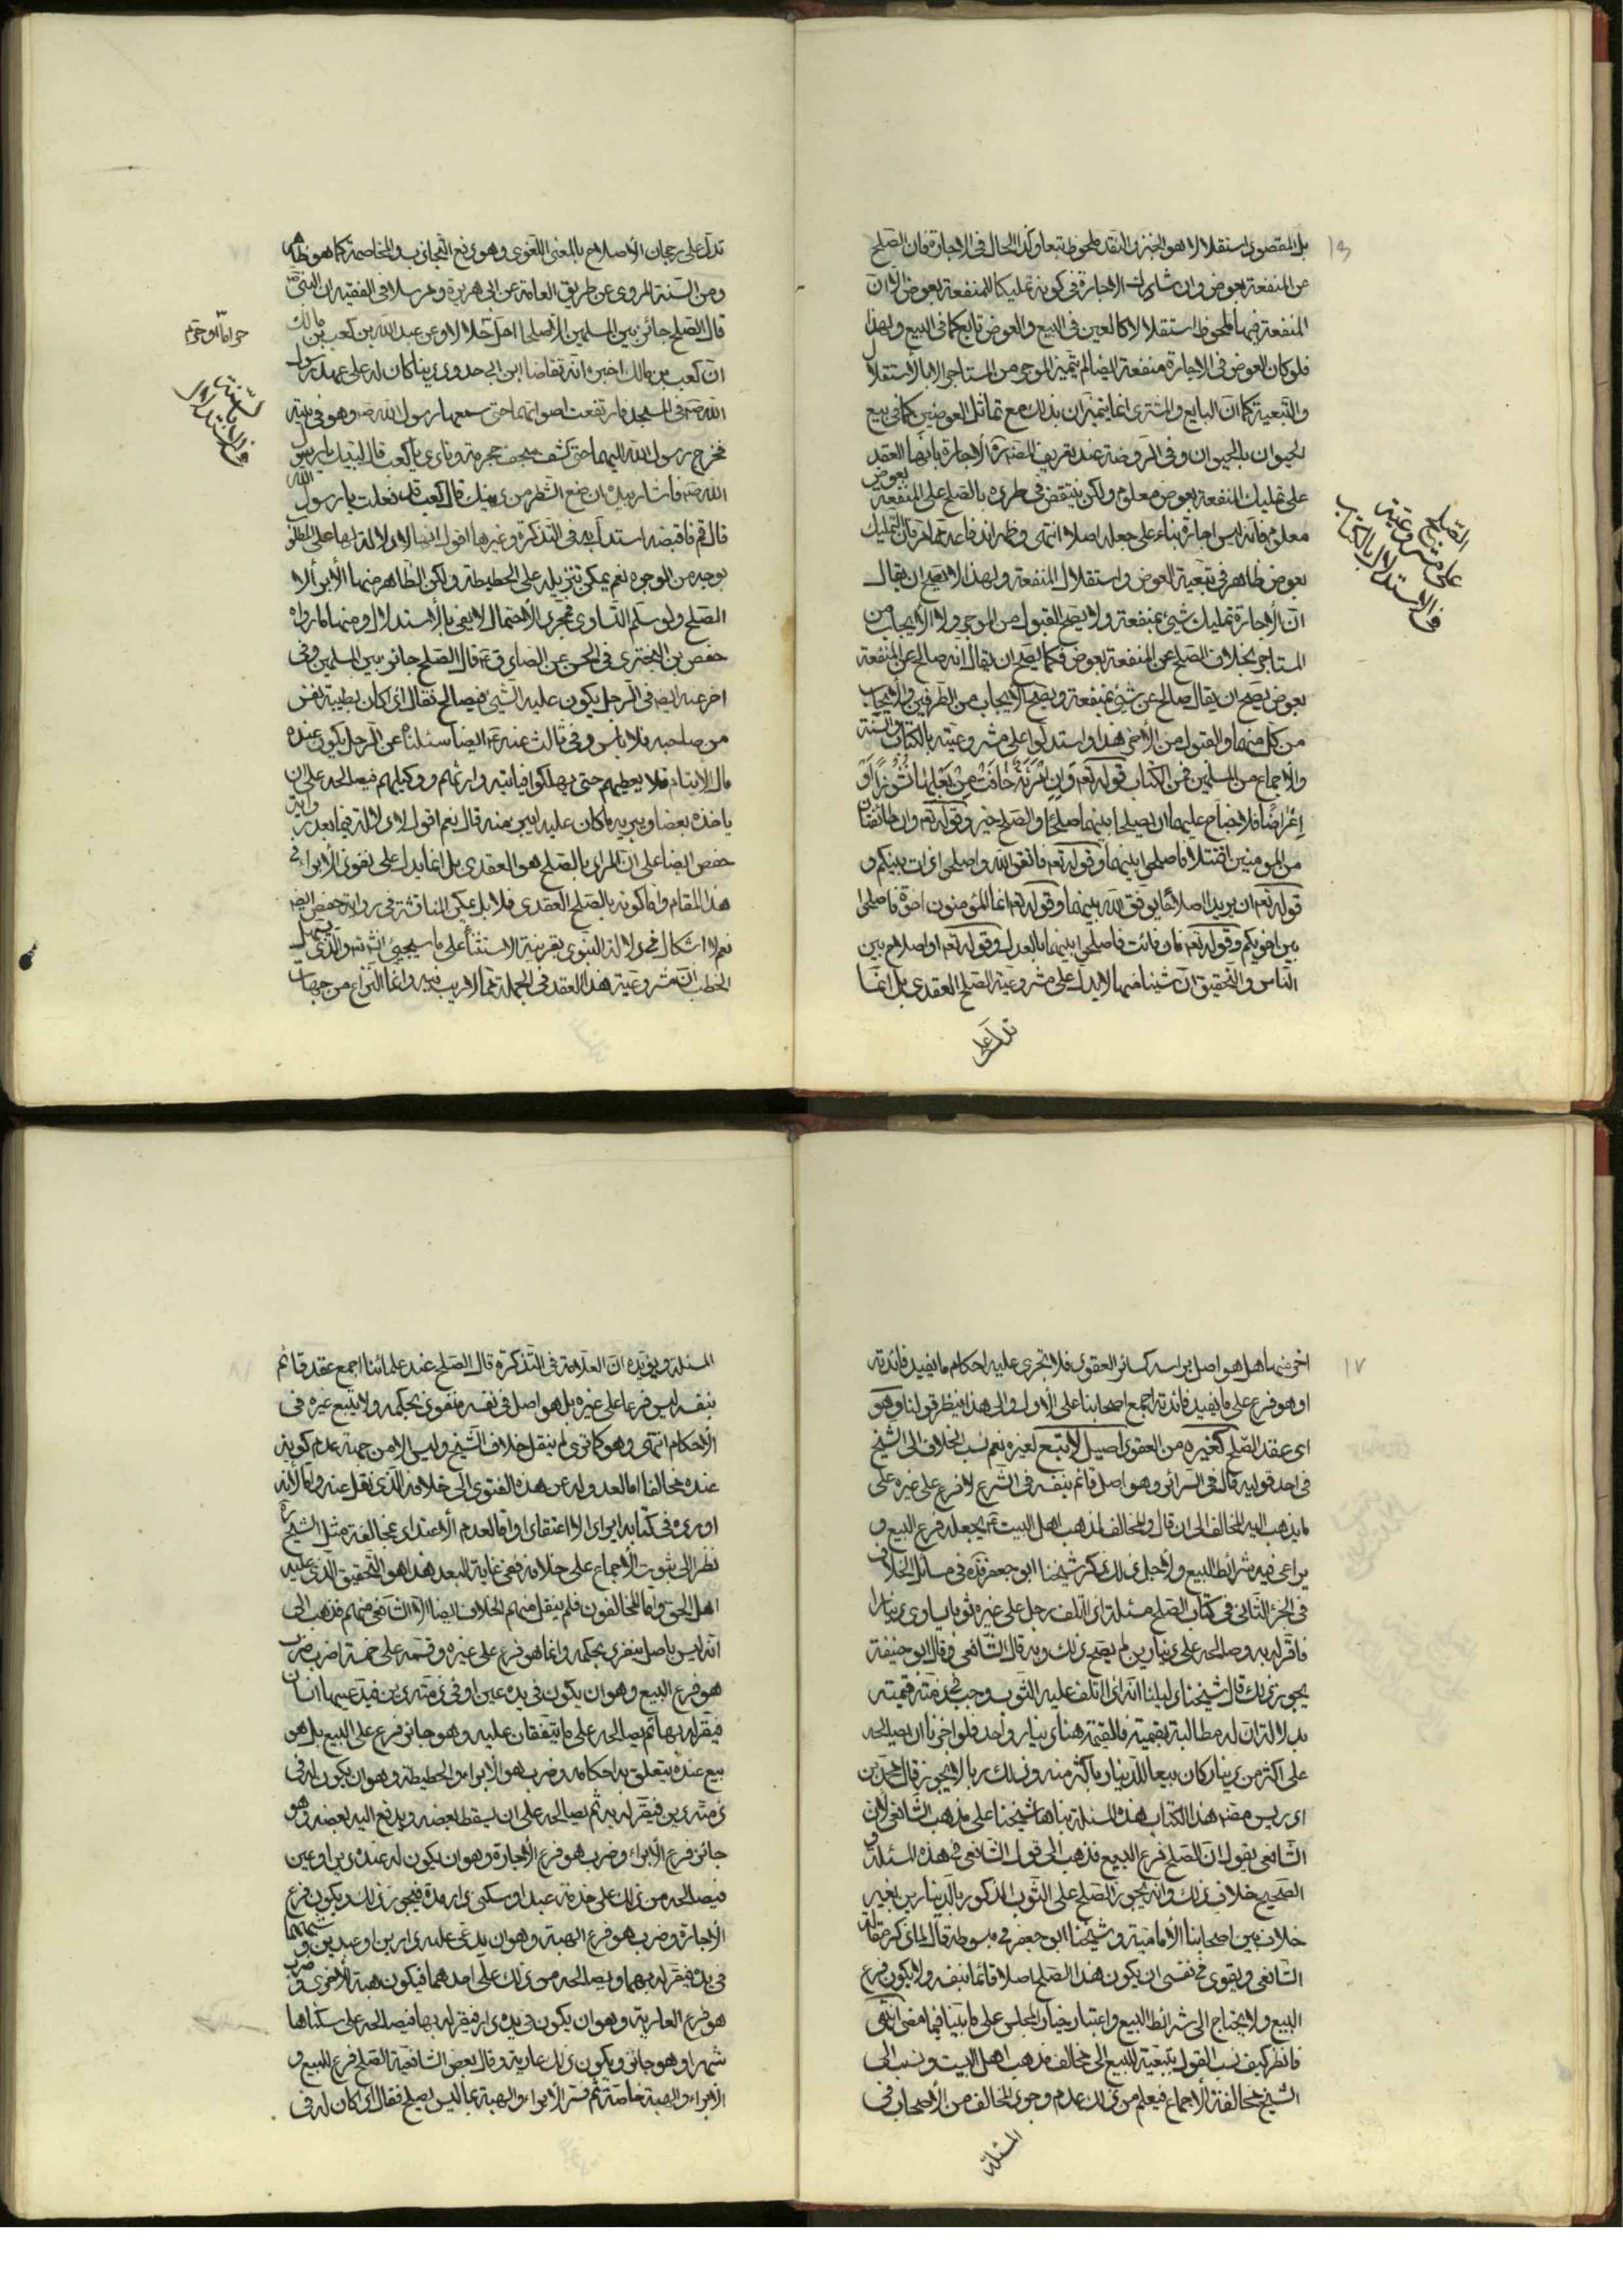 ١٦
بل المقصود استقلالا هو الخبز والنقد ملحوظ تبعا وكذا الحال في الاجارة فان الصلح
عن المنفعة بعوض وان شارك الاجارة في كونه تمليكا للمنفعة بعوض الا ان
المنفعة فيها ملحوظ استقلالا كالعين في البيع والعوض تابع كما في البيع ولهذا
فلو كان العوض في الاجارة منفعة ايضا لم يتميز الموجر من المستاجر الا بالاستقلال
والتبعية كما ان البايع والمشتري انما يتميزان بذلك مع تماثل العوضين كما في بيع
الحيوان بالحيوان وفي الروضة عند تعريف المصنف ره الاجارة بانها العقد
على تمليك المنفعة بعوض معلوم ولكن ينتقض في طرده بالصلح على المنفعة بعوض
معلوم فانه ليس اجارة بناء على جعله اصلا انتهى وظهر اندفاعه مما مر فان التمليك
بعوض ظاهر في تبعية العوض واستقلال المنفعة ولهذا لا يصح ان يقال
ان الاجارة تمليك شيئ بمنفعة ولا يصح القبول من الموجر ولا الايجاب من
المستاجر بخلاف الصلح عن المنفعة بعوض فكما يصح ان يقال انه صالح عن المنفعة
بعوض يصح ان يقال صالح عن شيئ بمنفعة ويصح الايجاب من الطرفين والايجاب
من كل منهما والقبول من الاخر هذا واستدلوا على مشروعيته بالكتاب والسنة
والاجماع من المسلمين فمن الكتاب قوله تعم وَاِن اِمْرَئَةٌ خافَتْ مِنْ بَعْلِها نُشُوزاً اَوْ
اِعْراضًا فلا جناح عليهما ان يصلحا بينهما صلحًا والصلح خير وقوله تعم وان طائفتان
من المومنين اقتتلا فاصلحوا بينهما وقوله تعم فاتقوا الله واصلحوا ذات بينكم و
قوله تعم ان يريدا اصلاحًا يوفق الله بينهما وقوله تعم انما المؤمنون اخوة فاصلحوا
بين اخويكم وقوله تعم فان فائت فاصلحوا بينهما بالعدل وقوله تعم او اصلاح بين
الناس والتحقيق ان شيئا منها لا يدل على مشروعية الصلح العقدي بل انما
تدل على
في الاستدلال بالكتاب
على مشروعية
الصلح
تدل على رجحان الاصلاح بالمعنى اللغوي وهو رفع التجاذب والمخاصمة كما هو ظاهر
ومن السنة المروي عن طريق العامة عن ابي هريرة ومرسلا في الفقيه ان النبي ص
قال الصلح جائز بين المسلمين الا صلحا احل حلالا وعن عبد الله بن كعب بن مالك
ان كعب بن مالك اخبره انه تقاضا ابن ابي حدرد دينا كان له على عهد رسول
الله ص في المسجد فارتفعت اصواتهما حتى سمعها رسول الله ص وهو في بيته
فخرج رسول الله اليهما حتى كشف سجف حجرته ونادى يا كعب قال لبيك يا رسول
الله ص فاشار بيده ان ضع الشطر من دينك قال كعب قد فعلت يا رسول الله
قال قم فاقبضه استدل به في التذكرة وغيرها اقول ايضا لا دلالة لها على المطلوب
بوجه من الوجوه نعم يمكن تنزيله على الحطيطة ولكن الظاهر منها الابراء لا
الصلح ولو سلم التساوي فمجرد الاحتمال لا يفي بالاستدلال ومنها ما رواه
حفص بن البختري في الحسن عن الصادق ع قال الصلح جائز بين المسلمين وفي
اخر عنه ايضا في الرجل يكون عليه الشيئ فيصالح فقال اذا كان بطيبة نفس
من صاحبه فلا باس وفي ثالث عنه ع ايضا سئلناه عن الرجل يكون عنده
مال الايتام فلا يعطيهم حتى يهلكوا فياتيه وارثهم ووكيلهم فيصالحه على ان
ياخذه بعضا ويبريه مما كان عليه ايبرء منه قال نعم اقول لا دلالة فيما بعد رواية
حفص ايضا على ان المراد بالصلح هو العقدي بل انما يدل على نفوذ الابراء في
هذا المقام واما كونه بالصلح العقدي فلا بل يمكن المناقشة في رواية حفص ايضا
نعم لا اشكال في دلالة النبوي بقرينة الاستثناء على ما سيجيئ انش تعم والذي يسهل
الخطب ان مشروعية هذا العقد في الجملة مما لا ريب فيه وانما النزاع من جهات
حراما او حرم
في الاستدلال
بالسنة
١٧
اخر منها هل هو اصل براسه كسائر العقود فلا تجري عليه احكام ما يفيد فائدته
او هو فرع على ما يفيد فائدته اجمع اصحابنا على الاول والى هذا ينظر قولنا وهو
اى عقد الصلح كغيره من العقود اصيل لا تبع لغيره نعم نسب الخلاف الى الشيخ
في احد قوليه قال في السرائر وهو اصل قائم بنفسه في الشرع لا فرع على غيره على
ما يذهب اليه المخالف الى ان قال والمخالف لمذهب اهل البيت ع يجعله فرع البيع و
يراعى فيه شرائط البيع ولاجل ذلك ذكر شيخنا ابو جعفر ره في مسائل الخلاف
في الجزء الثاني في كتاب الصلح مسئلة اذا اتلف رجل على غيره ثوبا يساوي دينارا
فاقر له به وصالحه على دينارين لم يصح ذلك وبه قال الشافعي وقال ابو حنيفة
يجوز ذلك قال شيخنا دليلنا انه اذا اتلف عليه الثوب وجب في ذمته قيمته
بدلالة ان له مطالبة بقيمته فالقيمة هنا دينار واحد فلو اجزنا ان يصالحه
على اكثر من دينار كان بيعا للدينار باكثر منه وذلك ربا لا يجوز قال محمد بن
ادريس مصنف هذا الكتاب هذه المسئلة بناها شيخنا على مذهب الشافعي لان
الشافعي يقول ان الصلح فرع البيع فذهب الى قول الشافعي في هذه المسئلة و
الصحيح خلاف ذلك وانه يجوز الصلح على الثوب المذكور بالدينارين بغير
خلاف بين اصحابنا الامامية وشيخنا ابو جعفر في مبسوطه قال لما ذكر مقالة
الشافعي ويقوى في نفسى ان يكون هذا الصلح اصلا قائما بنفسه ولا يكون فرع
البيع ولا يحتاج الى شرائط البيع واعتبار خيار المجلس على ما بينا فيما مضى انتهى
فانظر كيف نسب القول بتبعية البيع الى مخالف مذهب اهل البيت ونسب الى
الشيخ مخالفة الاجماع فيعلم من ذلك عدم وجود المخالف من الاصحاب في
المسئلة
المسئلة ويؤيده ان العلامة في التذكرة قال الصلح عند علمائنا اجمع عقد قائم
بنفسه ليس فرعا على غيره بل هو اصل في نفسه منفرد بحكمه ولا يتبع غيره في
الاحكام انتهى وهو كما ترى لم ينقل خلاف الشيخ وليس الا من جهة عدم كونه
عنده مخالفا اما لعدوله عن هذه الفتوى الى خلافه الذي نقل عنه واما لانه
اورده في كتابه ايرادا لا اعتقادا واما لعدم الاعتداد بمخالفة مثل الشيخ ره
نظرا الى ثبوت الاجماع على خلافه ففي غاية البعد هذا هو التحقيق الذي عليه
اهل الحق واما المخالفون فلم ينقل منهم الخلاف ايضا الا الشافعي منهم فذهب الى
انه ليس باصل ينفرد بحكمه وانما هو فرع على غيره وقسمه على خمسة اضرب ضرب
هو فرع البيع وهو ان يكون في يده عين او في ذمته دين فيدعيها انسان
فيقر له بها ثم يصالحه على ما يتفقان عليه وهو جائز فرع على البيع بل هو
بيع عنده يتعلق به احكامه وضرب هو الابراء والحطيطة وهو ان يكون له في
ذمته دين فيقر له به ثم يصالحه على ان يسقط بعضه ويدفع اليه بعضه وهو
جائز فرع الابراء وضرب هو فرع الاجارة وهو ان يكون له عنده دين او عين
فيصالحه من ذلك على خدمة عبد او سكنى دار مدة فيجوز ذلك ويكون فرع
الاجارة وضرب هو فرع الهبة وهو ان يدعى عليه دارين او عبدين و
في يده فيقر له بهما ويصالحه من ذلك على احدهما فيكون هبة للاخرى وضرب
هو فرع العارية وهو ان يكون في يده دار فيقر له بها فيصالحه على سكناها
شهرا وهو جائز ويكون ذلك عارية وقال بعض الشافعية الصلح فرع للبيع و
الابراء والهبة خاصة ثم فسر الابراء والهبة بما ليس بصلح فقال اذا كان له في